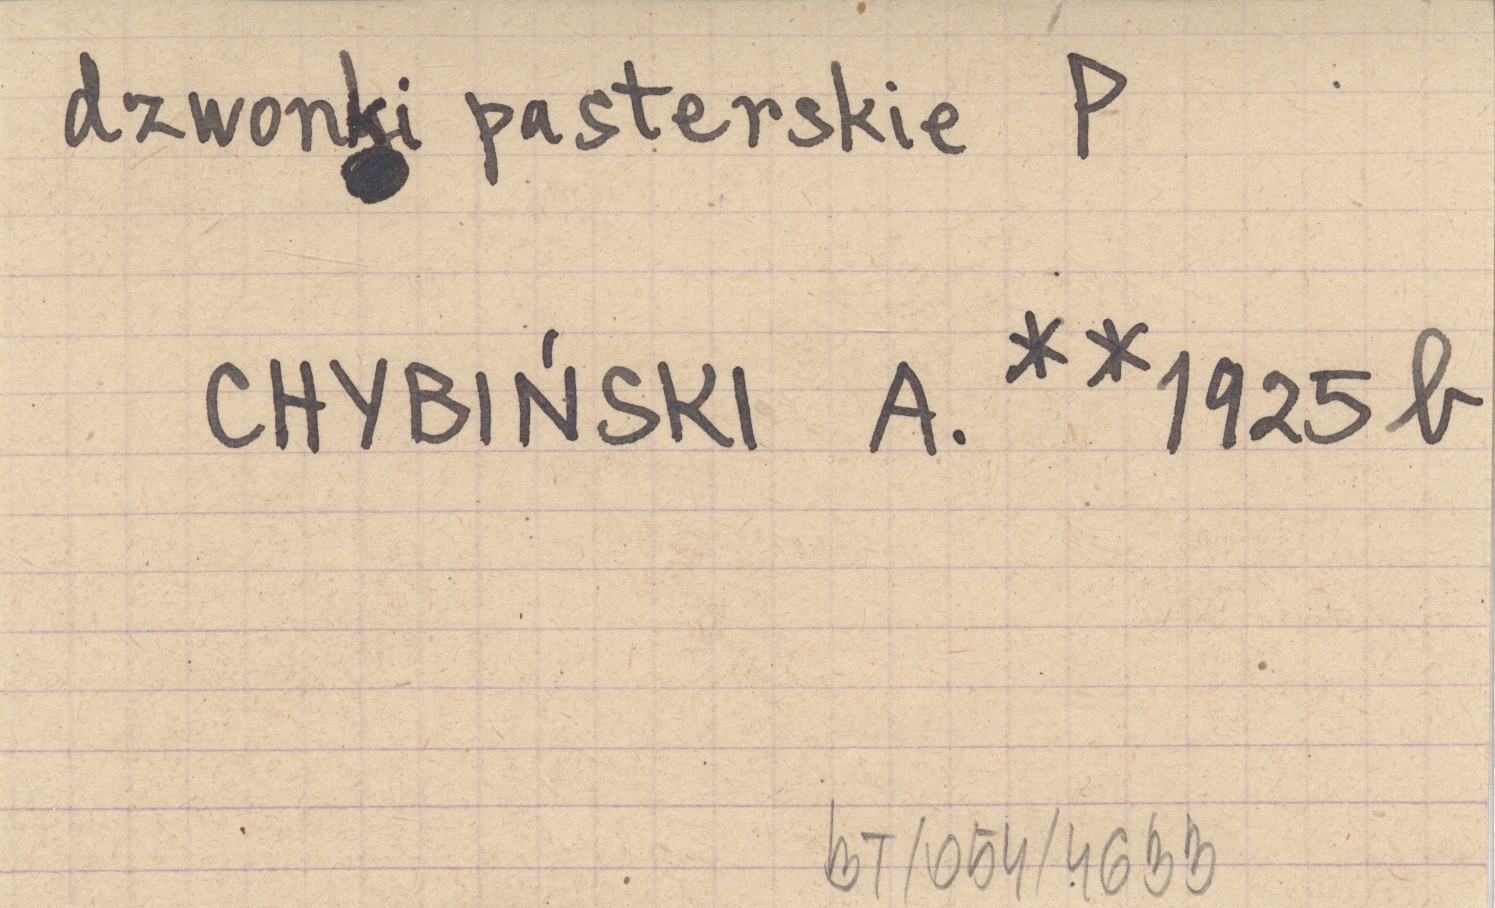 dzwonki pasterskie P
CHYBIŃSKI A. **1925 b
BT/054/4633